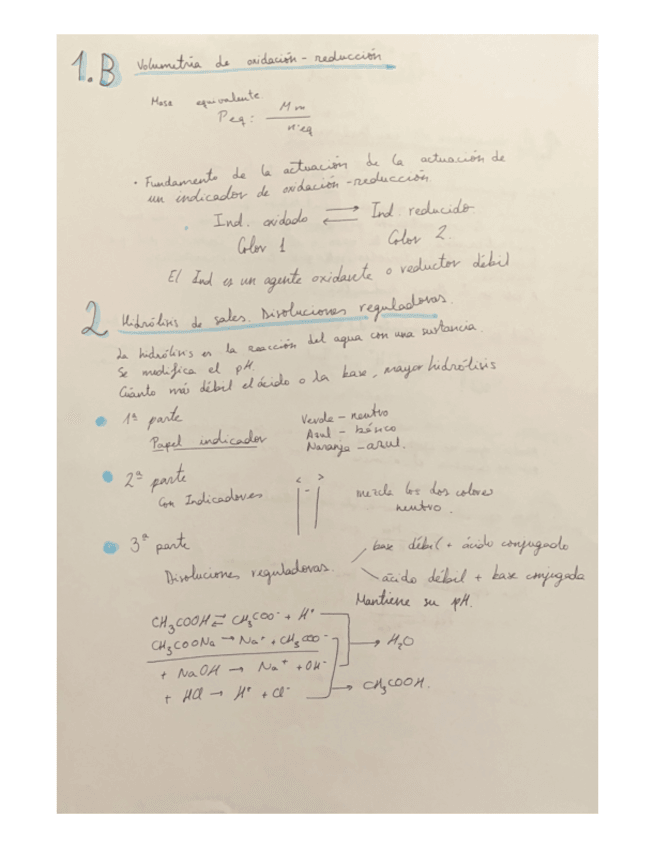 1.B Volumetría de oxidación-reducción
Masa equivalente
Peq: Mm / nºeq
· Fundamento de la actuación de la actuación de
un indicador de oxidación-reducción
Ind. oxidado ⇌ Ind. reducido
Color 1 Color 2.
El Ind es un agente oxidante o reductor débil
2 Hidrólisis de sales. Disoluciones reguladoras.
La hidrólisis es la reacción del agua con una sustancia.
Se modifica el pH.
Cuánto más débil el ácido o la base, mayor hidrólisis
1ª parte
Papel indicador
Verde - neutro
Azul - básico
Naranja - azul.
2ª parte
Con Indicadores
< - >
mezcla los dos colores
neutro.
3ª parte
Disoluciones reguladoras.
base débil + ácido conjugado
ácido débil + base conjugada
Mantiene su pH.
CH3COOH ⇌ CH3COO⁻ + H⁺
CH3COONa → Na⁺ + CH3COO⁻
+ NaOH → Na⁺ + OH⁻
→ H2O
+ HCl → H⁺ + Cl⁻
→ CH3COOH.